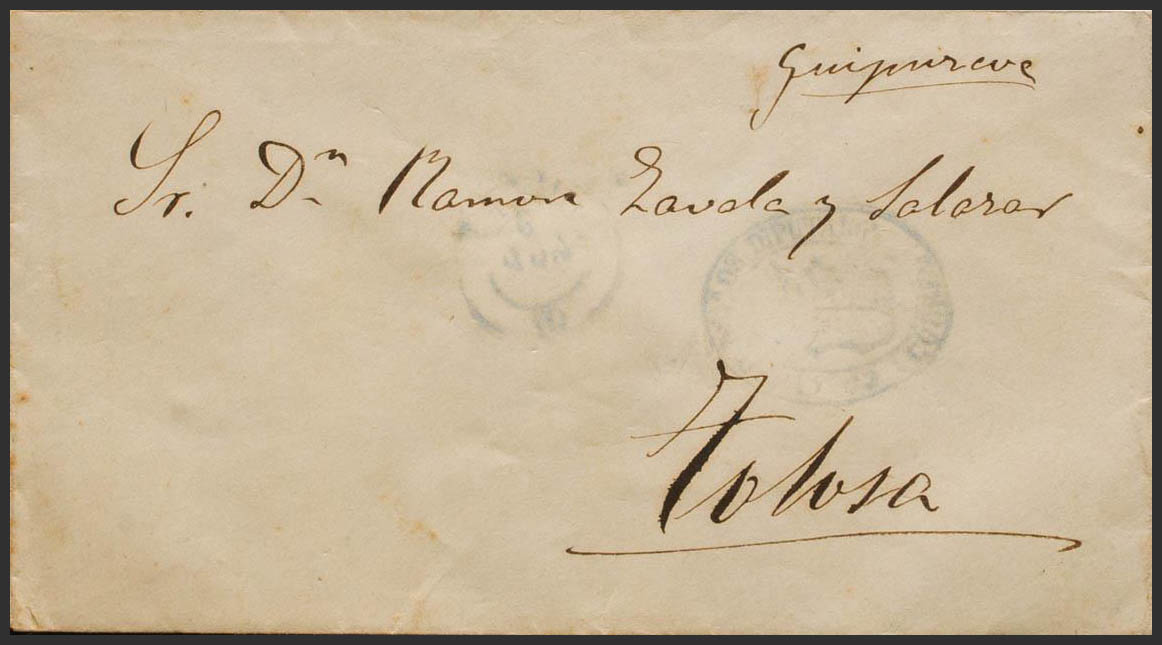 Guipuzcoa
Sr. Dn Ramon Zavala y Salazar
Tolosa